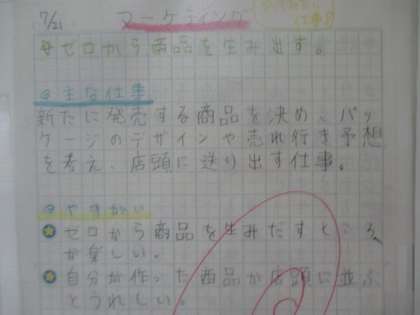 7/21 マーケティング
ゼロから商品を生み出す。
主な仕事
新たに発売する商品を決め、パッ
ケージのデザインや売れ行き予想
を考え、店頭に送り出す仕事。
やりがい
ゼロから商品を生みだすところ
が楽しい。
自分が作った商品が店頭に並ぶ
とうれしい。